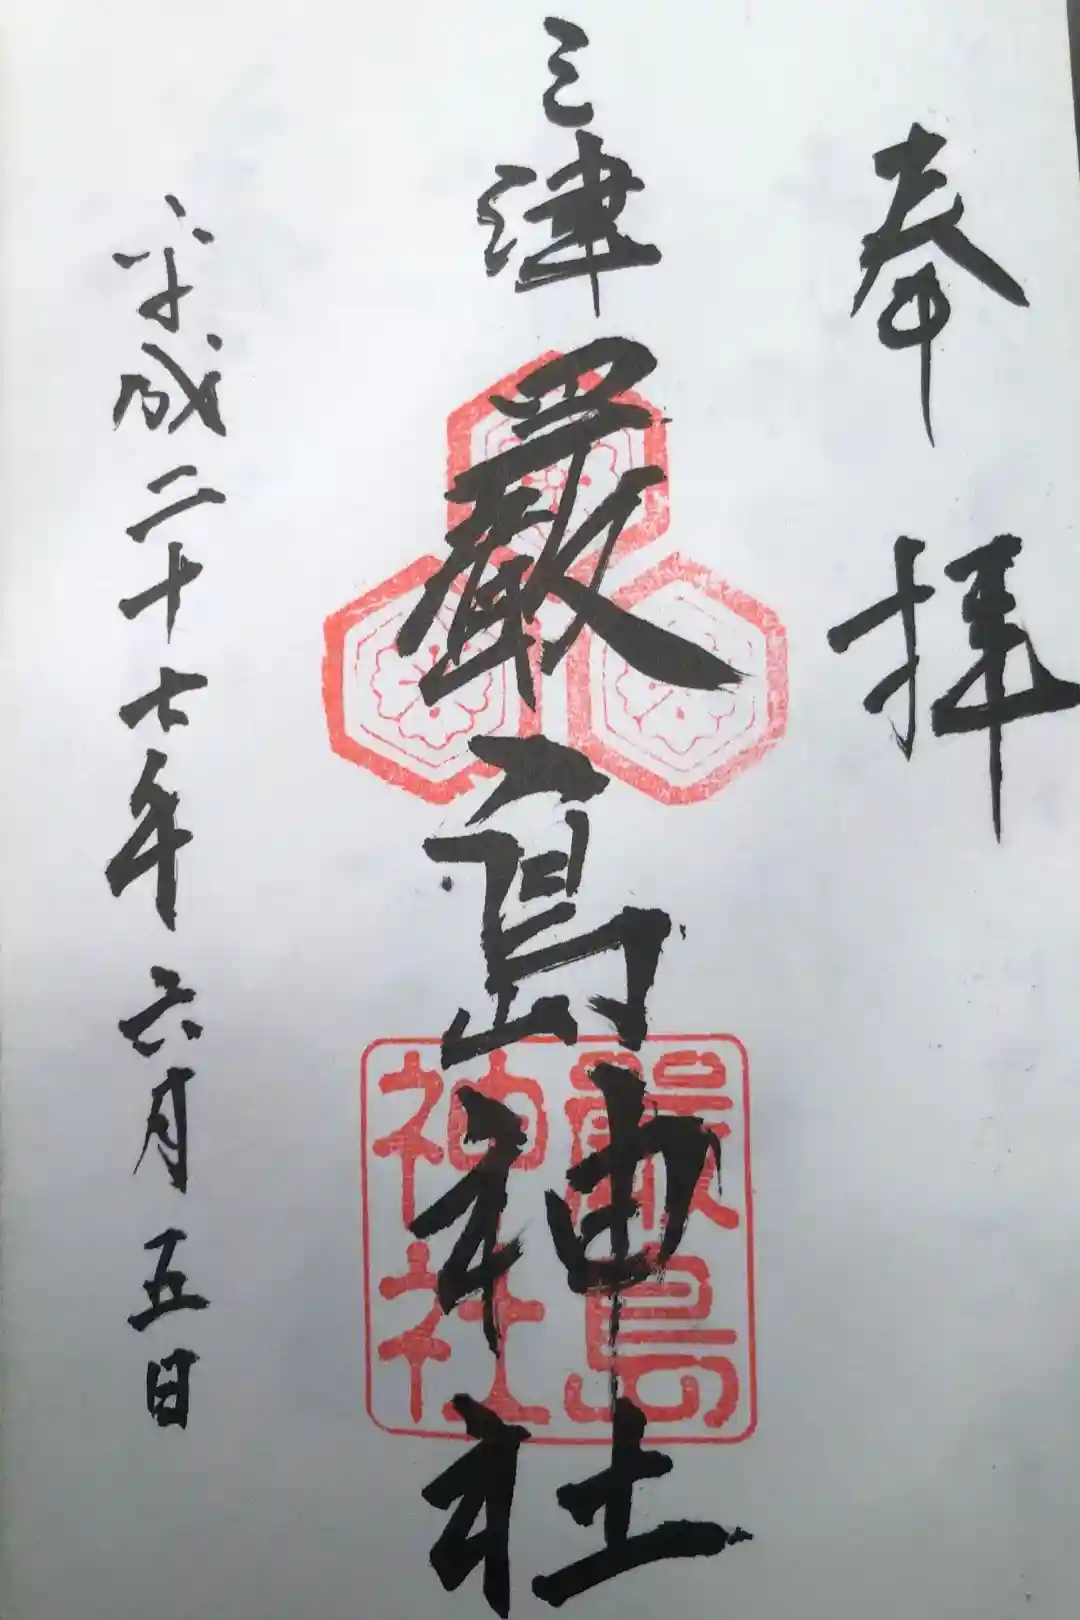 奉拝
三津
厳島神社
厳島
神社
平成二十七年六月五日